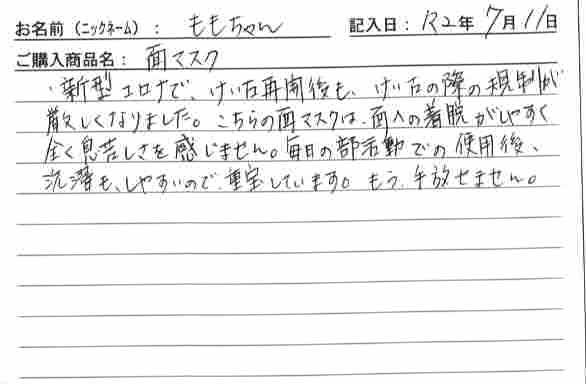 お名前（ニックネーム）： ももちゃん 記入日：R2年7月11日
ご購入商品名：面マスク
・新型コロナで、けい古再開後も、けい古の際の規制が
厳しくなりました。こちらの面マスクは、面への着脱がしやすく
全く息苦しさを感じません。毎日の部活動での使用後、
洗濯も、しやすいので、重宝しています。もう、手放せません。